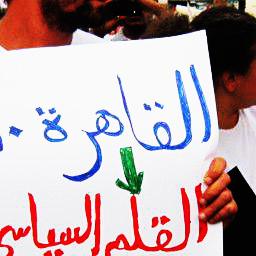 القاهرة ..
القلم السياسي